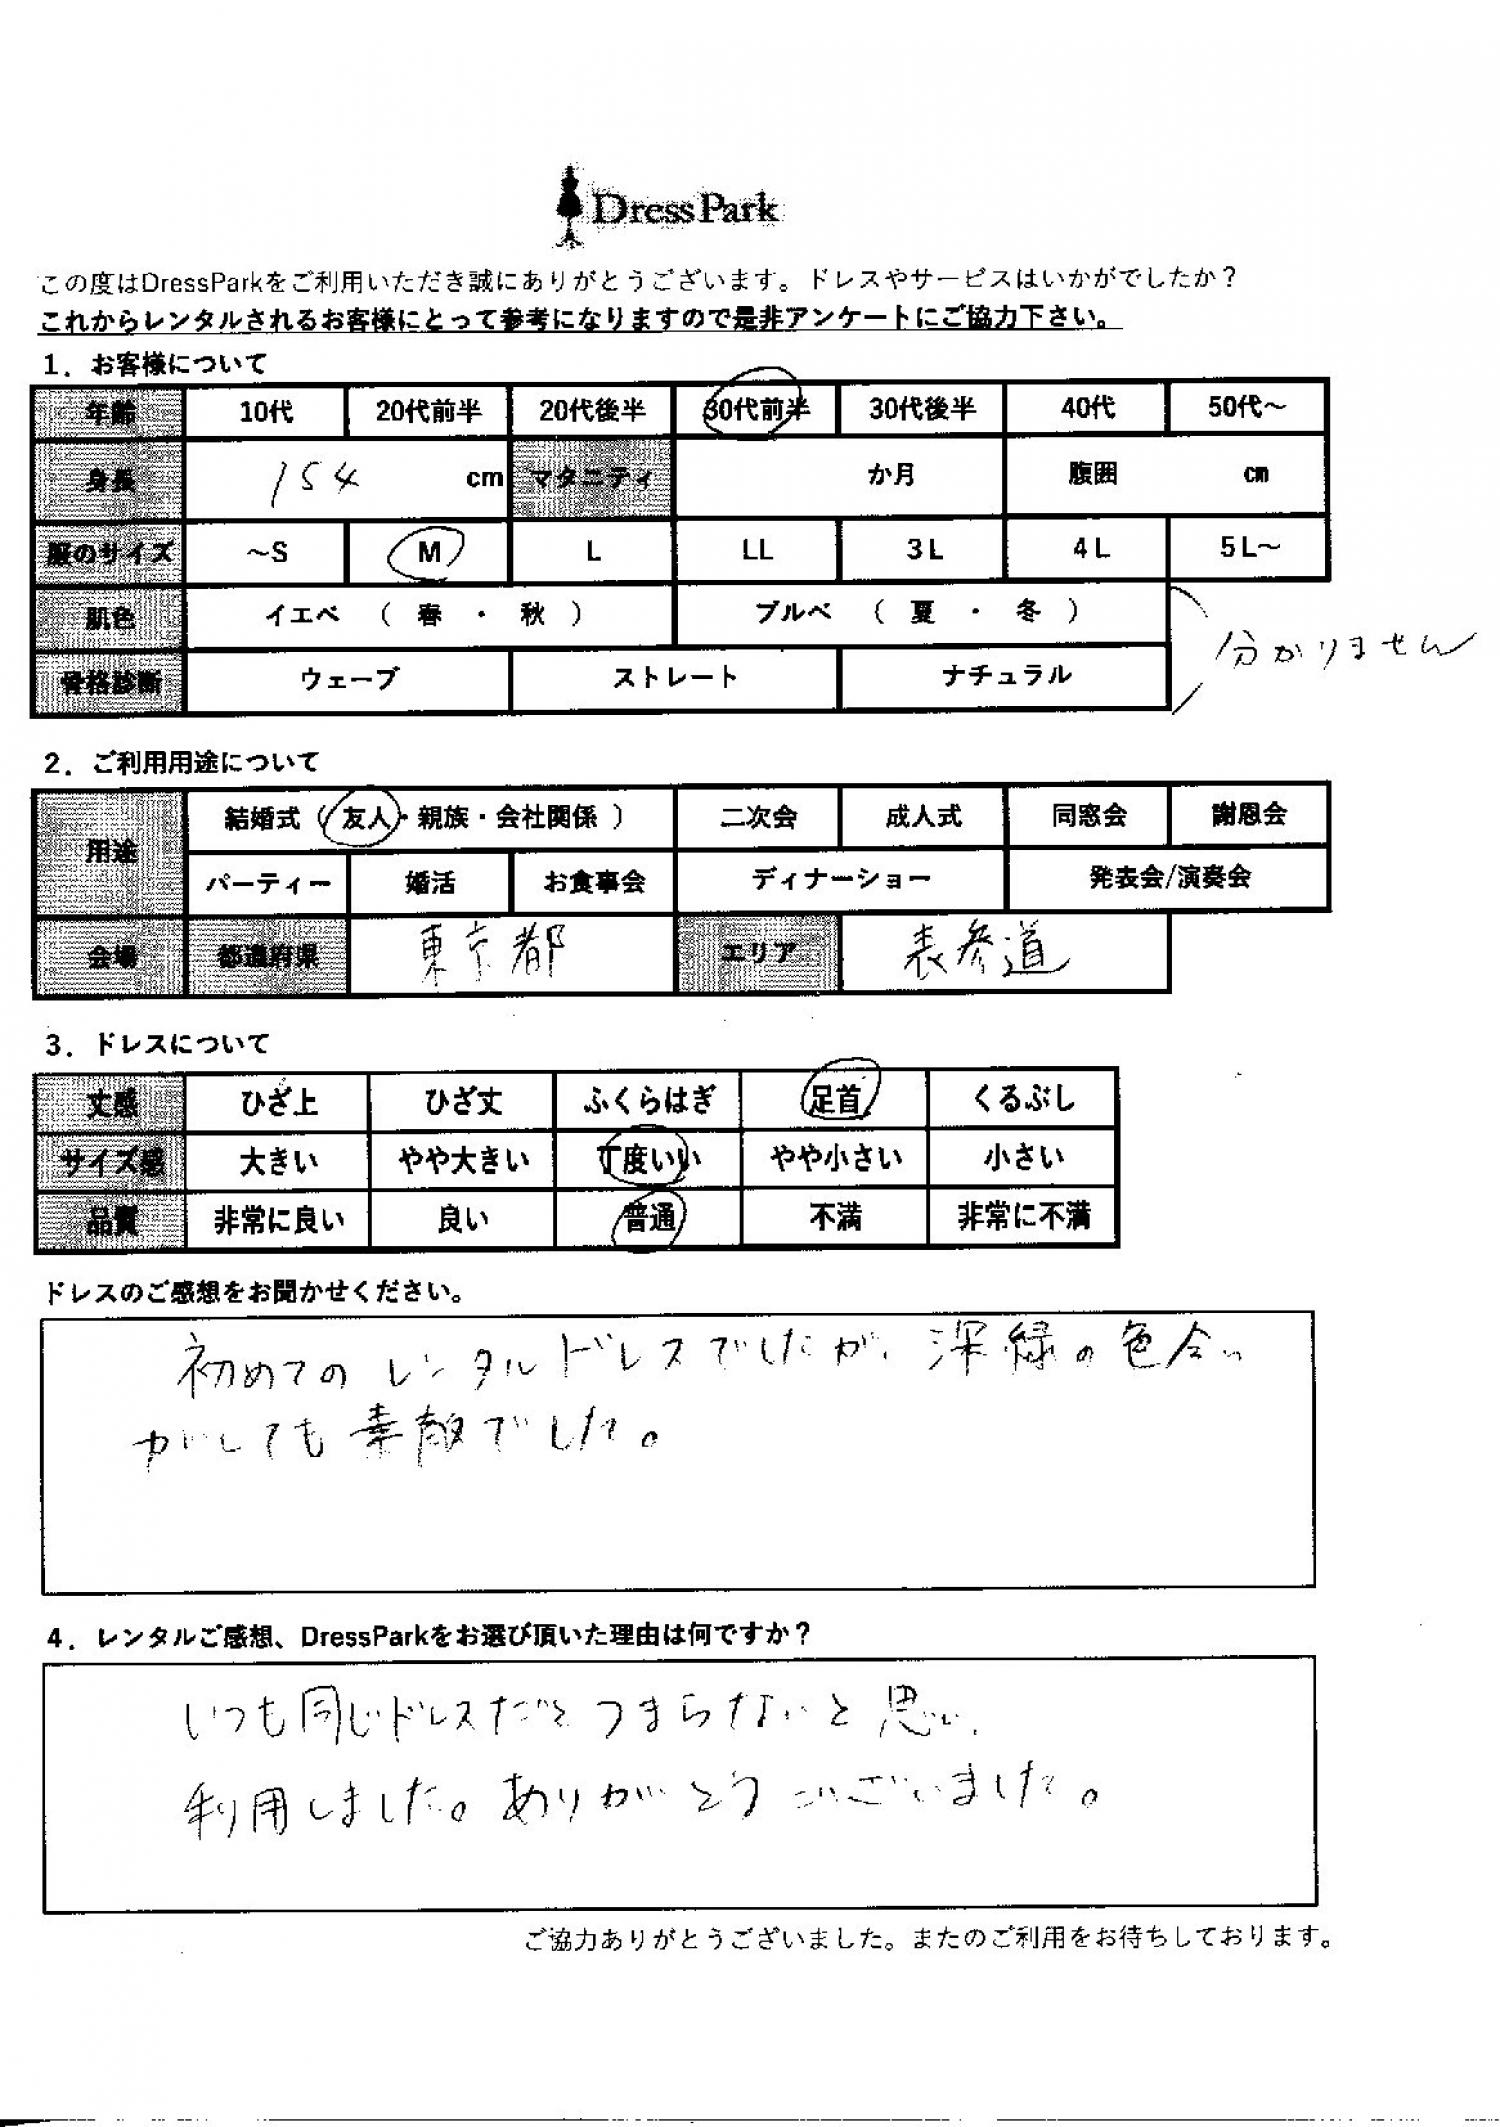 DressPark
この度はDressParkをご利用いただき誠にありがとうございます。ドレスやサービスはいかがでしたか？
これからレンタルされるお客様にとって参考になりますので是非アンケートにご協力下さい。
1．お客様について
年齢 10代 20代前半 20代後半 30代前半 30代後半 40代 50代～
身長 154 cm マタニティ か月 腹囲 cm
服のサイズ ～S M L LL 3L 4L 5L～
肌色 イエベ （ 春 ・ 秋 ） ブルベ （ 夏 ・ 冬 ）
分かりません
骨格診断 ウェーブ ストレート ナチュラル
2．ご利用用途について
用途 結婚式（友人・親族・会社関係 ） 二次会 成人式 同窓会 謝恩会
パーティー 婚活 お食事会 ディナーショー 発表会/演奏会
会場 都道府県 東京都 エリア 表参道
3．ドレスについて
丈感 ひざ上 ひざ丈 ふくらはぎ 足首 くるぶし
サイズ感 大きい やや大きい 丁度いい やや小さい 小さい
品質 非常に良い 良い 普通 不満 非常に不満
ドレスのご感想をお聞かせください。
初めてのレンタルドレスでしたが、深緑の色合い
がとても素敵でした。
4．レンタルご感想、DressParkをお選び頂いた理由は何ですか？
いつも同じドレスだとつまらないと思い、
利用しました。ありがとうございました。
ご協力ありがとうございました。またのご利用をお待ちしております。